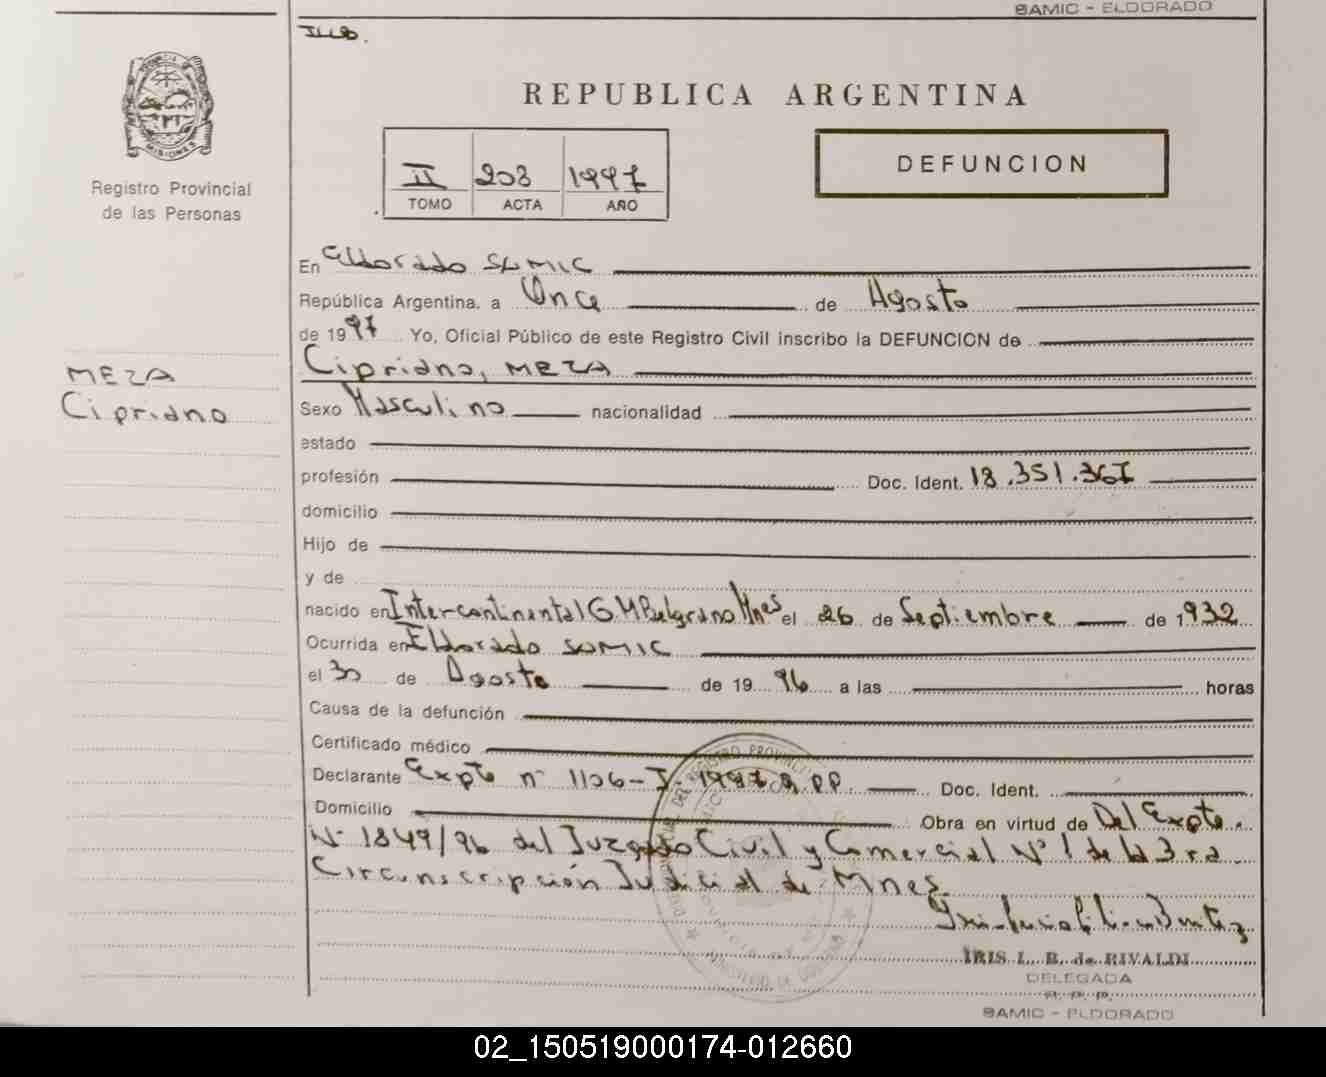 SAMIC - ELDORADO
PROVINCIA DE
MISIONES
Registro Provincial
de las Personas
REPUBLICA ARGENTINA
II 208 1997
TOMO ACTA AÑO
DEFUNCION
En Eldorado SAMIC
República Argentina, a Once de Agosto
de 1997 Yo, Oficial Público de este Registro Civil inscribo la DEFUNCION de
MEZA
Cipriano
Cipriano, MEZA
Sexo Masculino nacionalidad
estado
profesión Doc. Ident. 18.351.361
domicilio
Hijo de
y de
nacido en Intercontinental G M Belgrano Mnes el 26 de Septiembre de 1932
Ocurrida en Eldorado SAMIC
el 30 de Agosto de 1996 a las horas
Causa de la defunción
Certificado médico
Declarante Expte nº 1106-I-1997 R.PP. Doc. Ident.
Domicilio Obra en virtud de Del Expte.
Nº 1849/96 del Juzgado Civil y Comercial Nº 1 de la 3ra
Circunscripción Judicial de Mnes
IRIS L. B. de RIVALDI
DELEGADA
R. P. P.
SAMIC - ELDORADO
02_150519000174-012660